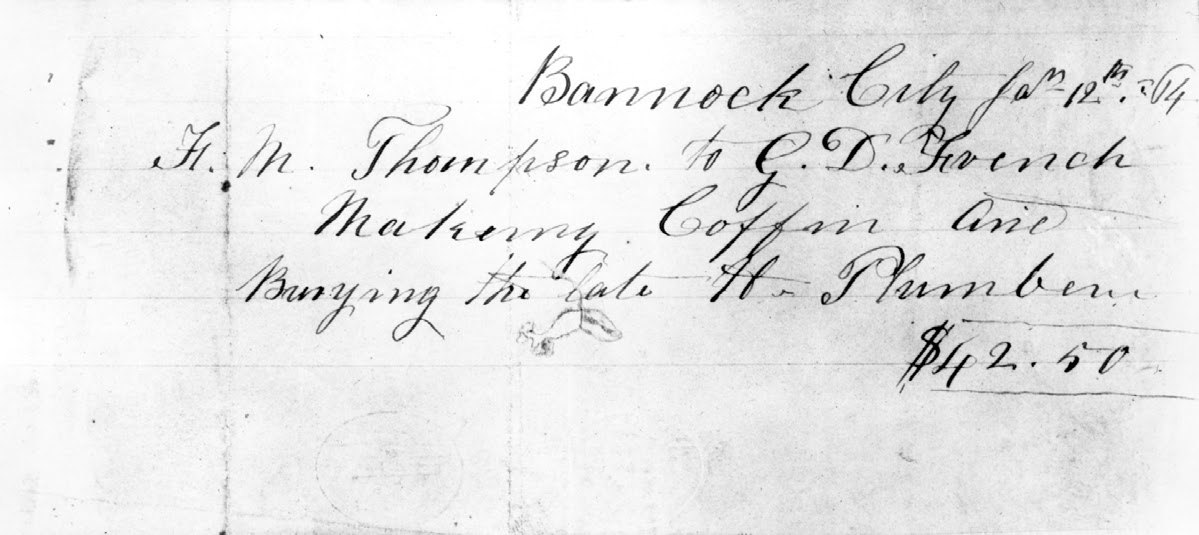 Bannock City Jan 12th. 64
F. M. Thompson. to G. D. French
Makeing Coffin and
Burying the late H- Plumber
$42.50